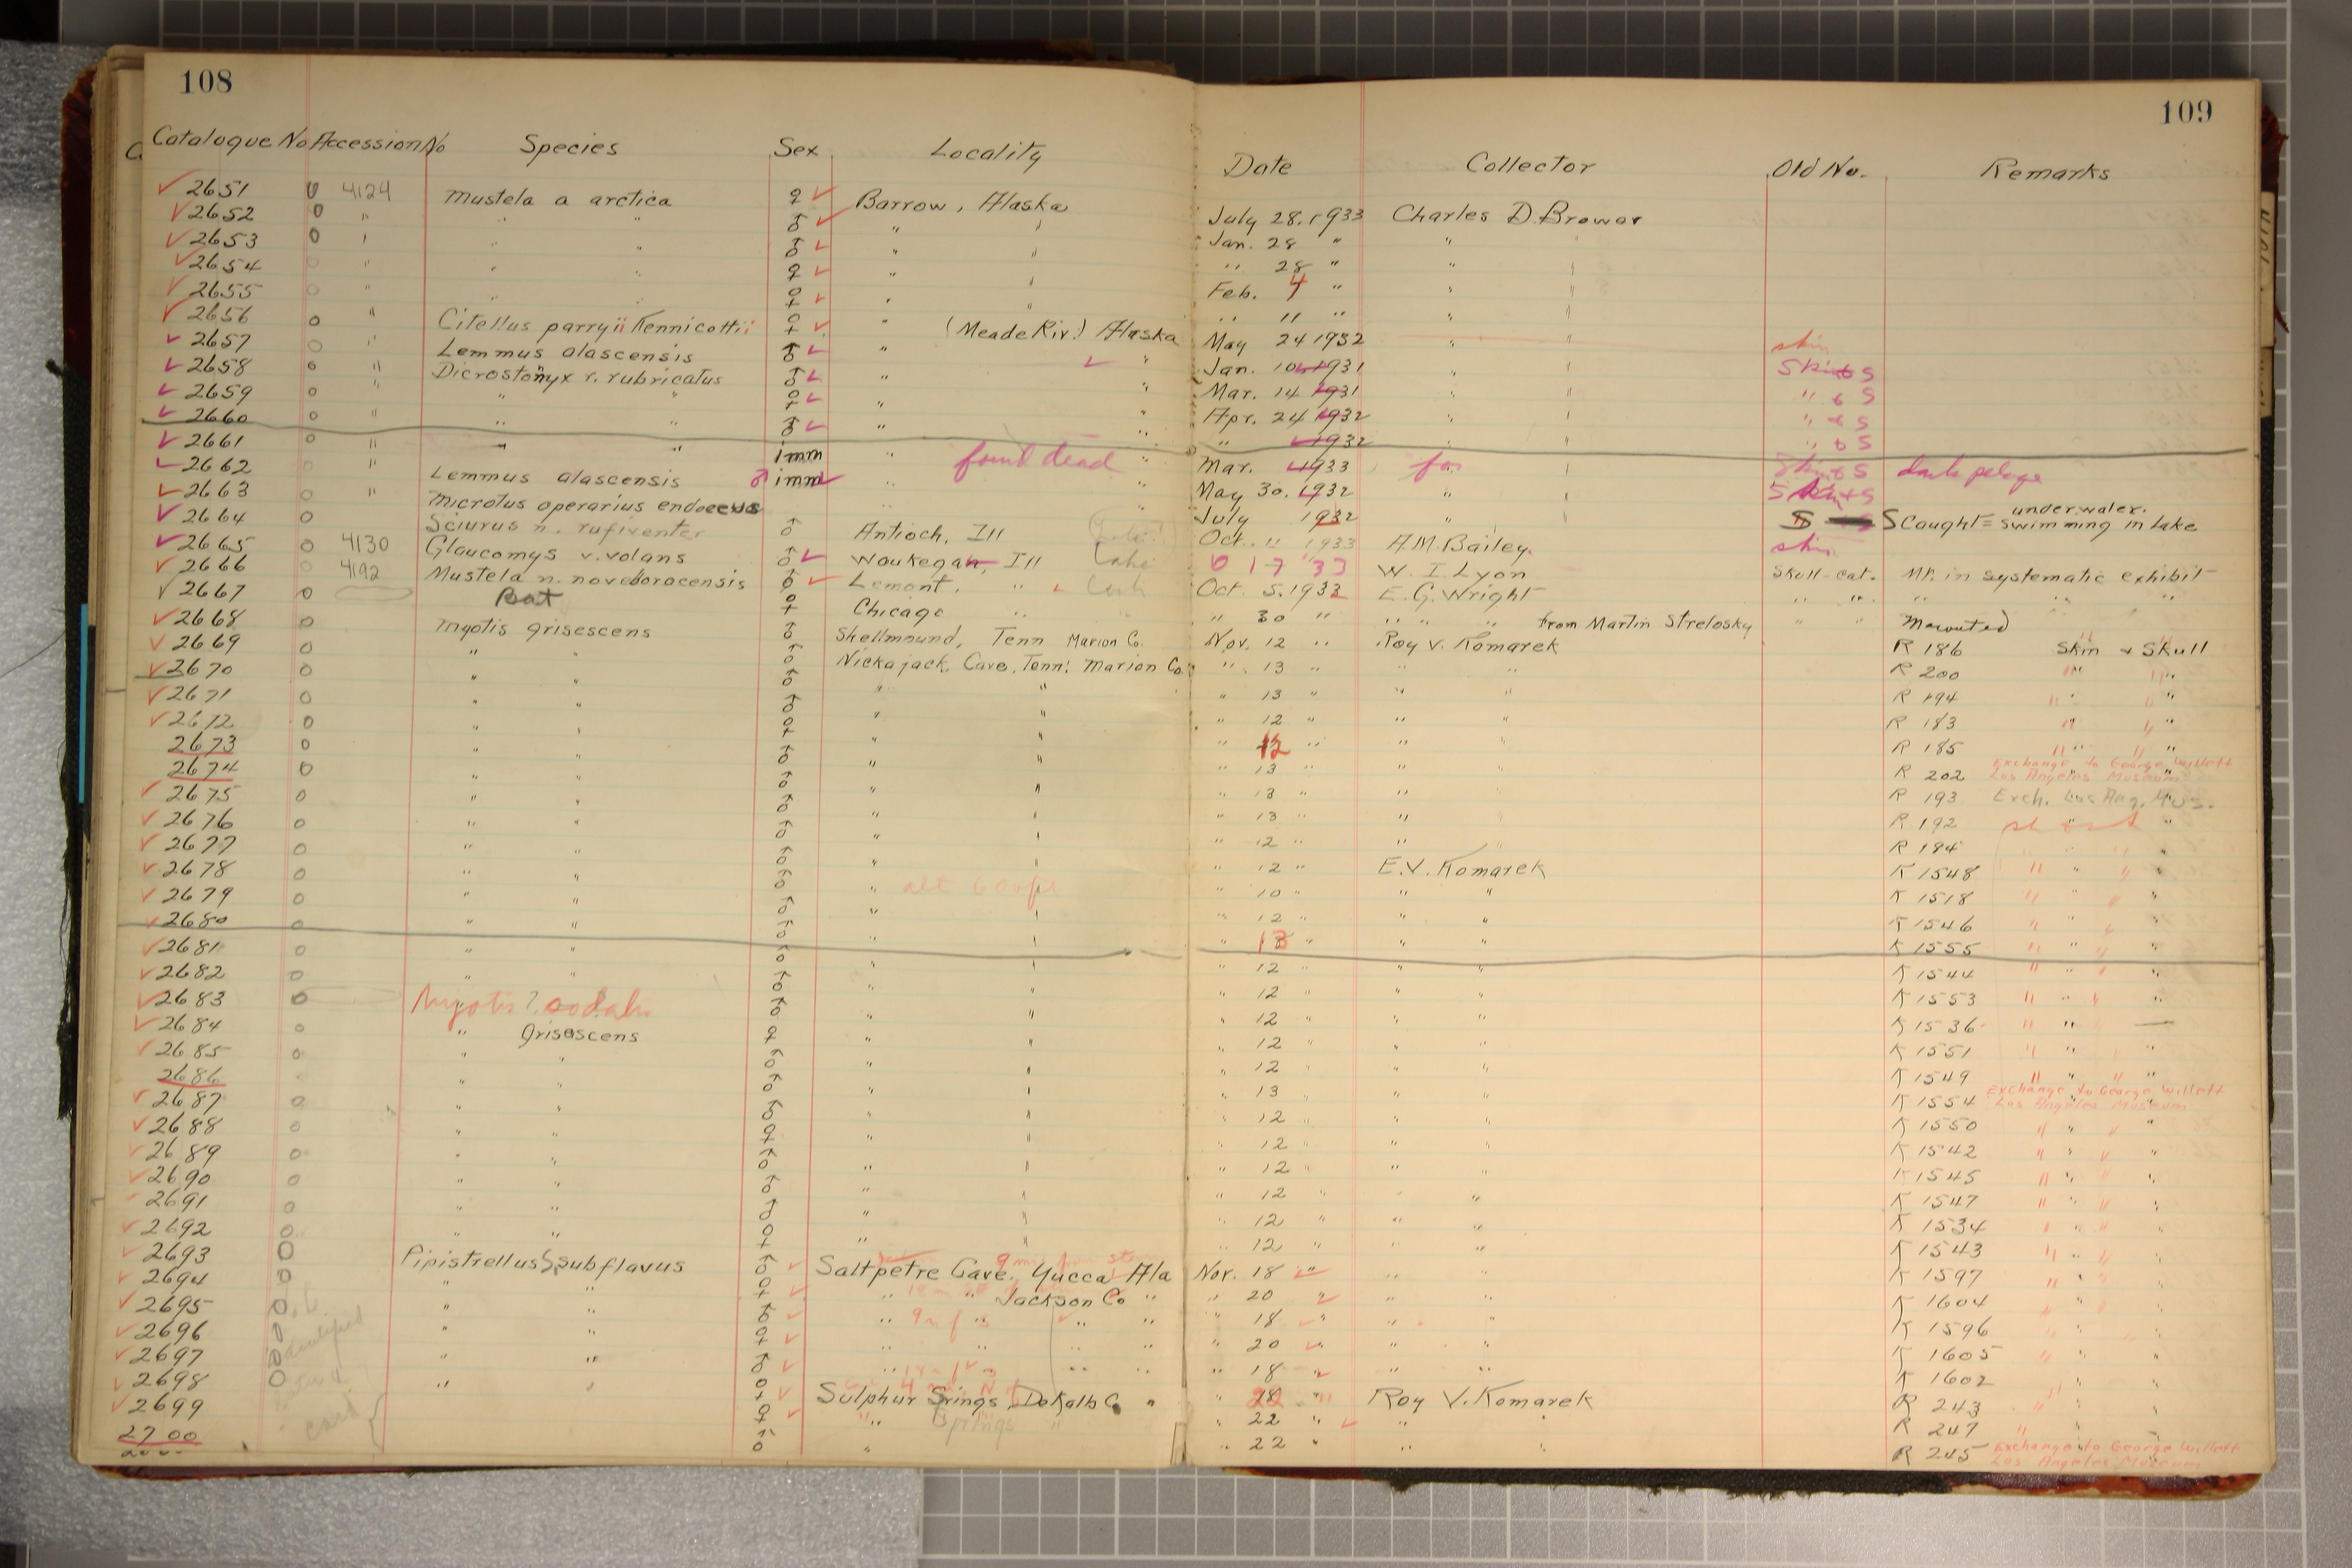 108
109
Catalogue No Accession No Species Sex Locality Date Collector Old No. Remarks
2651 0 4124 Mustela a arctica ♀ Barrow, Alaska July 28, 1933 Charles D. Brower
2652 0 " " " ♂ " " Jan. 28 " " "
2653 0 " " " ♂ " " " 28 " " "
2654 0 " " " ♀ " " Feb. 4 " " "
2655 0 " " " ♀ " " " 11 " " "
2656 0 " Citellus parryii Kennicottii ♀ " (Meade Riv.) Alaska May 24 1932 " " skin
2657 0 " Lemmus alascensis ♂ " " Jan. 10 1931 " " Skin & S
2658 0 " Dicrostonyx r. rubricatus ♂ " " Mar. 14 1931 " " " & S
2659 0 " " " ♀ " " Apr. 24 1932 " " " & S
2660 0 " " " ♂ " " " 1932 " " " & S
2661 0 " " " imm " found dead " Mar. 1933 " " Skin & S dark pelage
2662 0 " Lemmus alascensis ♂ imm " " May 30. 1932 " " Skin & S
2663 0 " Microtus operarius endoecus " " July 1932 " " S Caught = swimming in lake under water.
2664 0 Sciurus n. rufiventer ♂ Antioch, Ill Oct. 11 1933 A.M. Bailey. skin
2665 0 4130 Glaucomys v. volans ♂ Waukegan, Ill Lake 6 17 "33 W. I. Lyon Skull-cat. Mt. in systematic exhibit
2666 0 4192 Mustela n. noveboracensis ♂ Lemont, " Cook Oct. 5. 1933 E. G. Wright " " " " "
2667 0 Bat ♀ Chicago " " 30 " " " " from Martin Strelosky " " Mounted
2668 0 Myotis grisescens ♂ Shellmound, Tenn Marion Co. Nov. 12 " Roy V. Komarek R 186 Skin & Skull
2669 0 " " ♂ Nickajack Cave, Tenn. Marion Co. " 13 " " " R 200 " "
2670 0 " " ♂ " " " 13 " " " R 194 " "
2671 0 " " ♂ " " " 12 " " " R 183 " "
2672 0 " " ♀ " " " 12 " " " R 185 " "
2673 0 " " ♂ " " " 13 " " " R 202 Exchange to George Willett Los Angeles Museum
2674 0 " " ♂ " " " 13 " " " R 193 Exch. Los Ang. Mus.
2675 0 " " ♂ " " " 13 " " " R 192
2676 0 " " ♂ " " " 12 " " " R 184 " "
2677 0 " " ♂ " " " 12 " E.V. Komarek K 1548 " "
2678 0 " " ♂ " alt 600ft " 10 " " " K 1518 " "
2679 0 " " ♂ " " " 12 " " " K 1546 " "
2680 0 " " ♂ " " " 13 " " " K 1555 " "
2681 0 " " ♂ " " " 12 " " " K 1544 " "
2682 0 " " ♂ " " " 12 " " " K 1553 " "
2683 0 Myotis ? sodalis ♂ " " " 12 " " " K 1536 " " —
2684 0 " grisescens ♀ " " " 12 " " " K 1551 " "
2685 0 " " ♂ " " " 12 " " " K 1549 " "
2686 0 " " ♂ " " " 13 " " " K 1554 Exchange to George Willett Los Angeles Museum
2687 0 " " ♂ " " " 12 " " " K 1550 " "
2688 0 " " ♀ " " " 12 " " " K 1542 " "
2689 0 " " ♂ " " " 12 " " " K 1545 " "
2690 0 " " ♂ " " " 12 " " " K 1547 " "
2691 0 " " ♂ " " " 12 " " " K 1534 " "
2692 0 " " ♀ " " " 12 " " " K 1543 " "
2693 0 Pipistrellus s. subflavus ♂ Saltpetre Cave, Yucca Ala Nov. 18 " " " K 1597 " "
2694 0 " " ♀ " " Jackson Co " " 20 " " " K 1604 " "
2695 0 " " ♂ " " " " " 18 " " " K 1596 " "
2696 0 " " ♀ " " " " " 20 " " " K 1605 " "
2697 0 " " ♂ " " " " " 18 " " " K 1602 " "
2698 0 " " ♀ Sulphur Springs, DeKalb Co " " Roy V. Komarek R 243 " "
2699 card ♀ " Springs " " 22 " " " R 247 " "
2700 ♂ " " 22 " " " R 245 Exchange to George Willett Los Angeles Museum